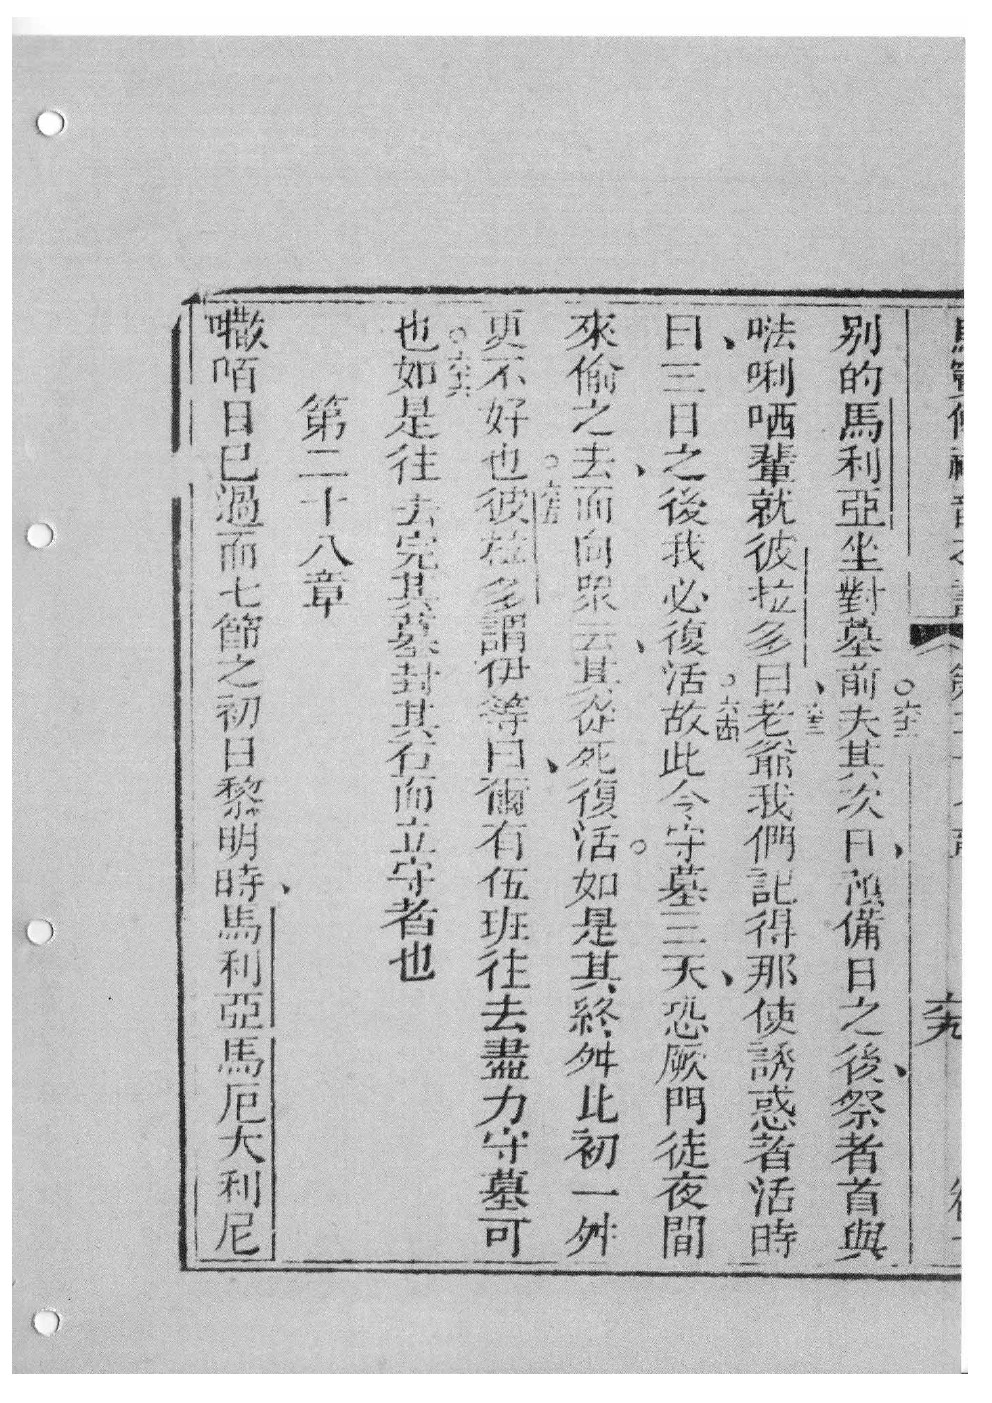 六九
別的馬利亞坐對墓前夫○六二其次日、預備日之後、祭者首與
唎哂輩就彼拉多曰、六三老爺我們記得那使誘惑者活時
曰、三日之後我必復活○六四故此令守墓三天、恐厥門徒夜間
來偷之去、而向眾云、其從死復活。如是其終舛比初一舛
更不好也○六五彼拉多謂伊等曰、爾有伍班往去盡力守墓可
也○六六如是往去完其墓封其石而立守者也
第二十八章
咟日已過而七節之初日黎明時、馬利亞馬厄大利尼